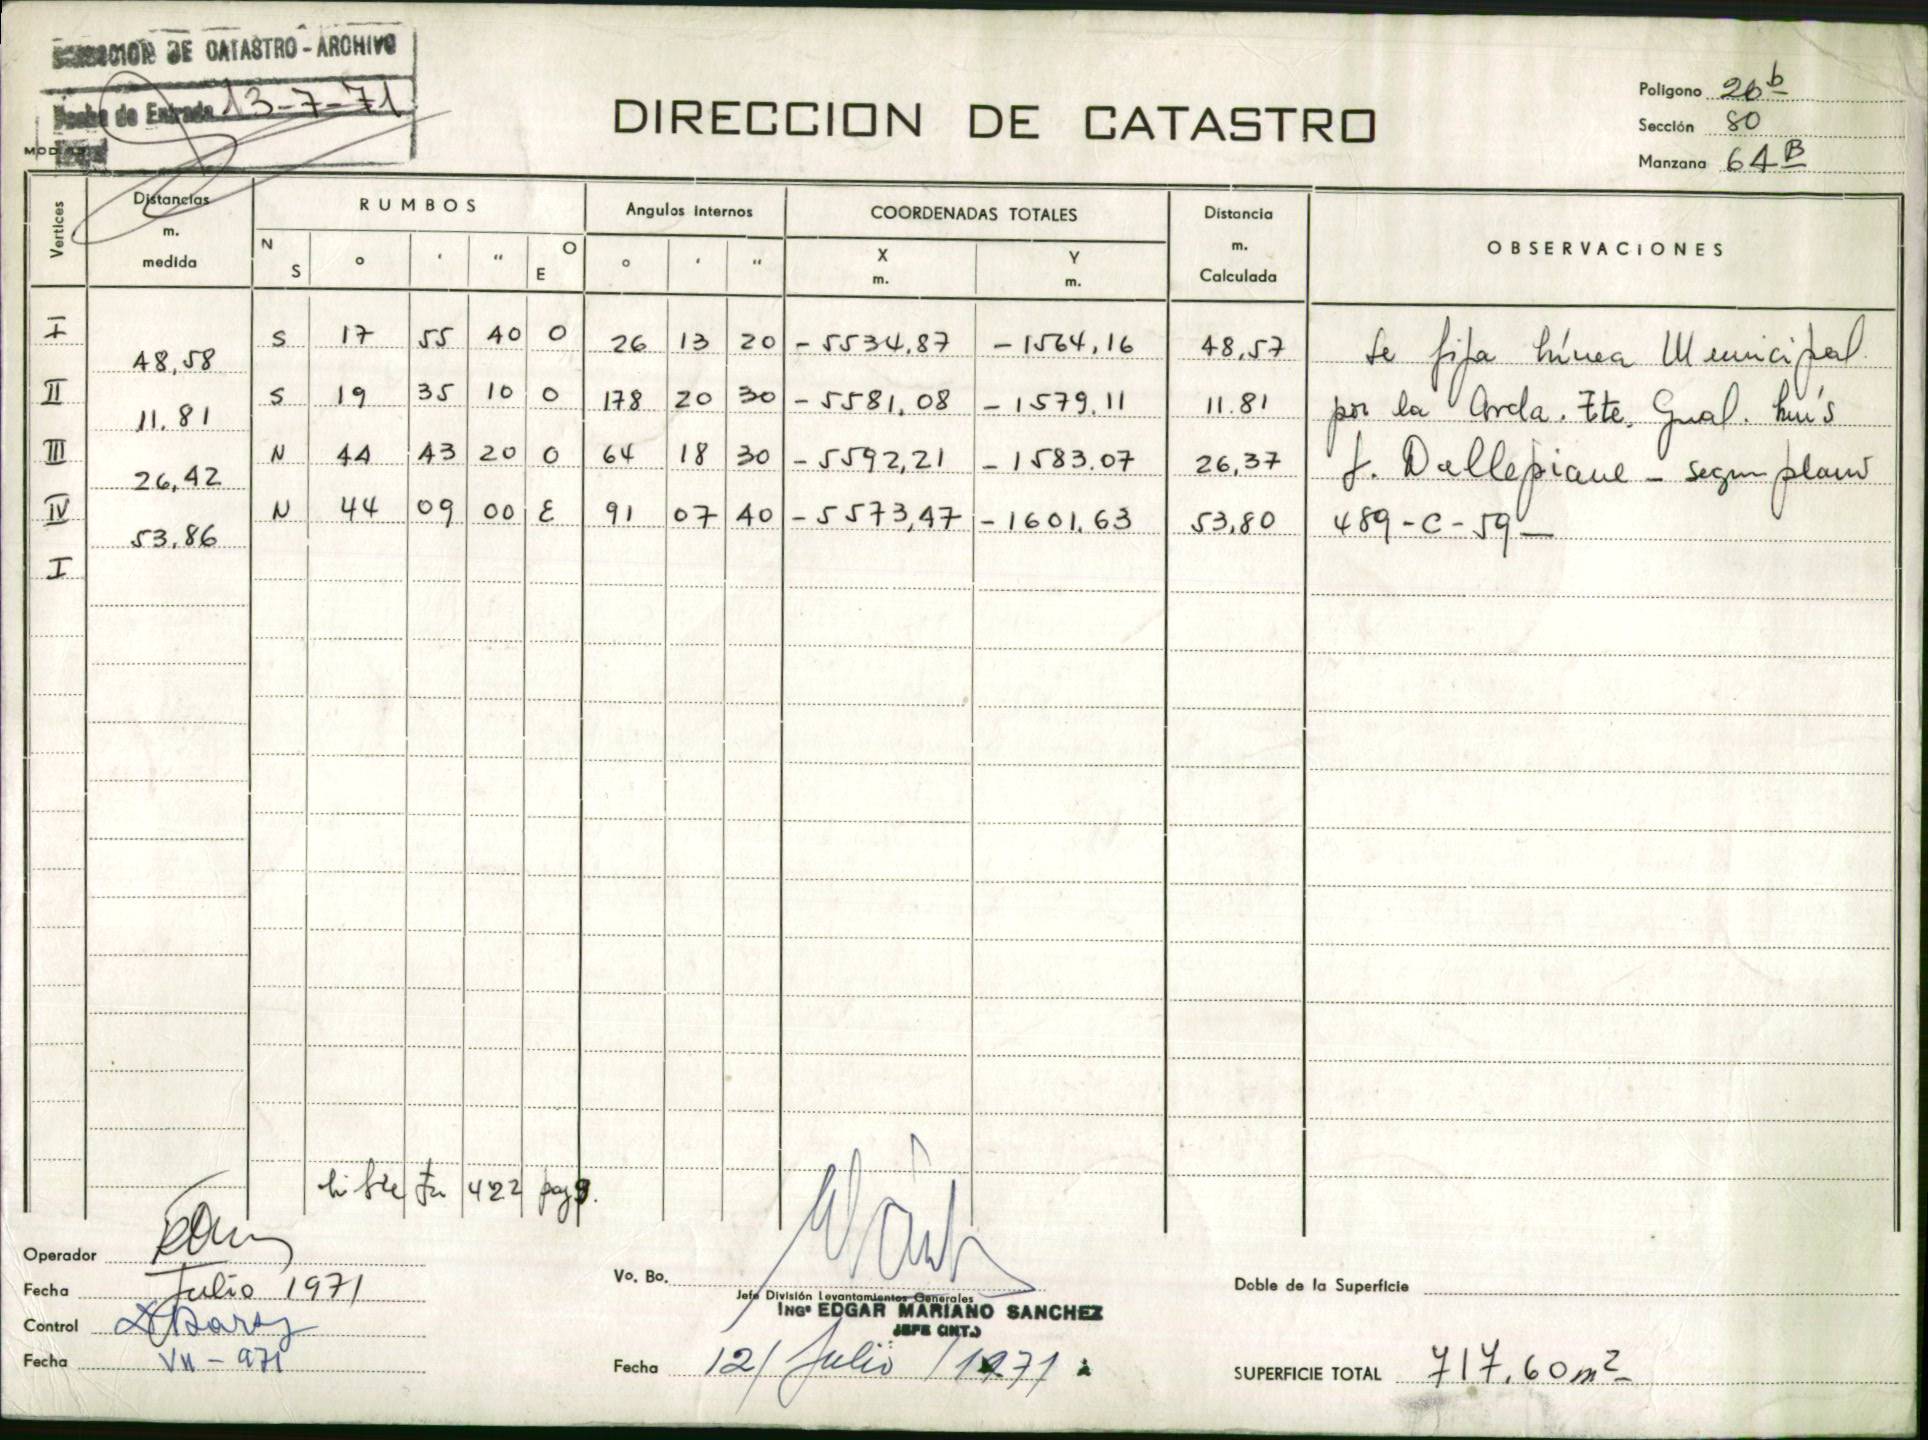 DIRECCION DE CATASTRO - ARCHIVO
Fecha de Entrada 13-7-71
DIRECCION DE CATASTRO
Poligono 26 b
Sección 80
Manzana 64 B
MOD
Vertices
Distancias m. medida
RUMBOS
N S ° ' " O E
Angulos internos
° ' "
COORDENADAS TOTALES
X m. Y m.
Distancia m. Calculada
OBSERVACIONES
I S 17 55 40 O 26 13 20 -5534,87 -1564,16 48,57 Se fija Línea Municipal
48,58
II S 19 35 10 O 178 20 30 -5581,08 -1579,11 11.81 por la Avda. Tte. Gral. Luis
11.81
III N 44 43 20 O 64 18 30 -5592,21 -1583.07 26,37 J. Dellepiane - segun plano
26,42
IV N 44 09 00 E 91 07 40 -5573,47 -1601,63 53,80 489-C-59-
53,86
I
Libreta 422 pag 9.
Operador
Fecha Julio 1971
Control
Fecha VII-971
Vo. Bo.
Jefe División Levantamientos Generales
ING° EDGAR MARIANO SANCHEZ
JEFE (INT.)
Fecha 12/Julio/1971
Doble de la Superficie
SUPERFICIE TOTAL 717,60m2-